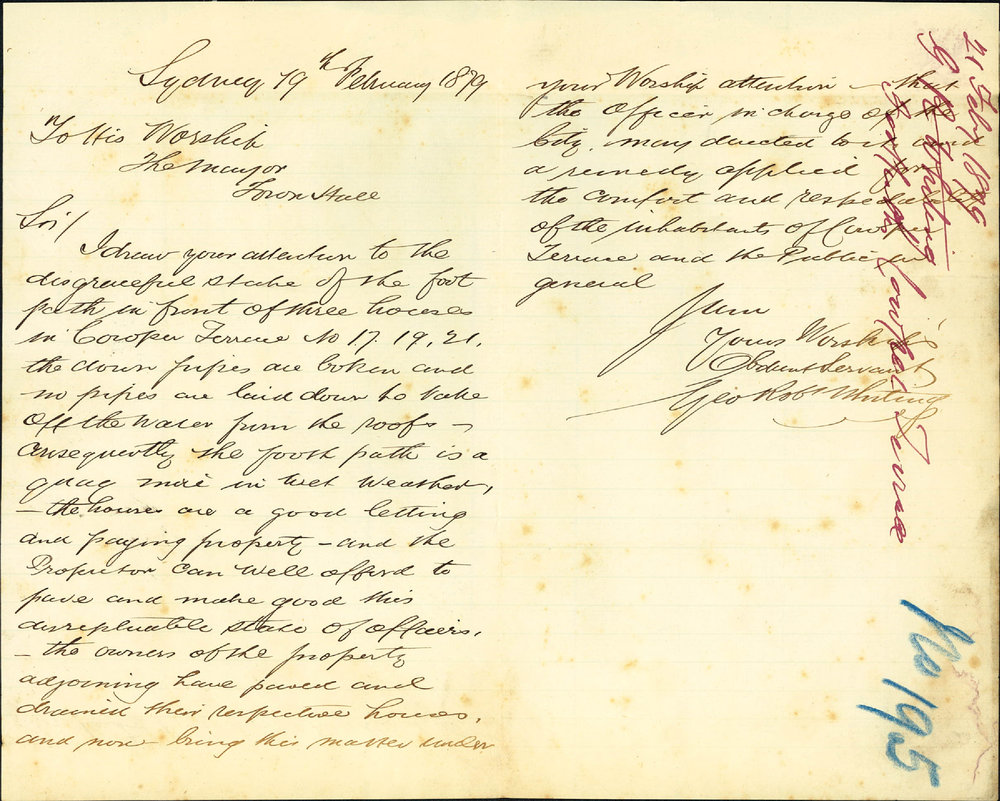 Sydney 19th February 1879
To His Worship
The Mayor
Town Hall
Sir/
I draw your attention to the
disgraceful state of the foot
path in front of three houses
in Cowper Terrace No 17. 19. 21.
the down pipes are boken and
no pipes are laid down to take
off the water from the roofs –
consequently the footh path is a
quag mire in wet weather,
– the houses are a good letting
and paying property – and the
Proprietor can well afford to
pave and make good this
disreputable state of affairs.
– the owners of the property
adjoining have paved and
drained their respective houses.
and now bring this matter under
your Worship attention – that
the Officer in charge of the
City. may directed to it and
a remedy applied for
the comfort and respectability
of the inhabitants of Cowper
Terrace and the Public in
general
I am
Yours Worship's
Obedient Servant
Geo Robt Whiting
21 Feby 1879
G R Whiting
Footpath Cowper Terrace
No 195